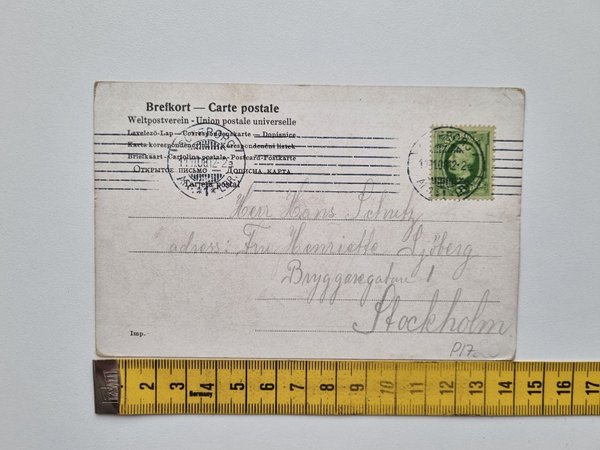 Brefkort — Carte postale
Weltpostverein - Union postale universelle
Levelező-Lap — Correspondenzkarte — Dopisnice
Karta korespondencyjna — Korespondenční lístek
Briefkaart - Cartolina postale - Postcard-Postkarte
Открытое письмо — Дописна карта
Tarjeta postal
Herr Hans Schutz
adress: Fru Henriette Sjöberg
Bryggaregatan 1
Stockholm
Imp.
P17
2 3 4 5 6 7 8 9 10 11 12 13 14 15 16 17
Germany